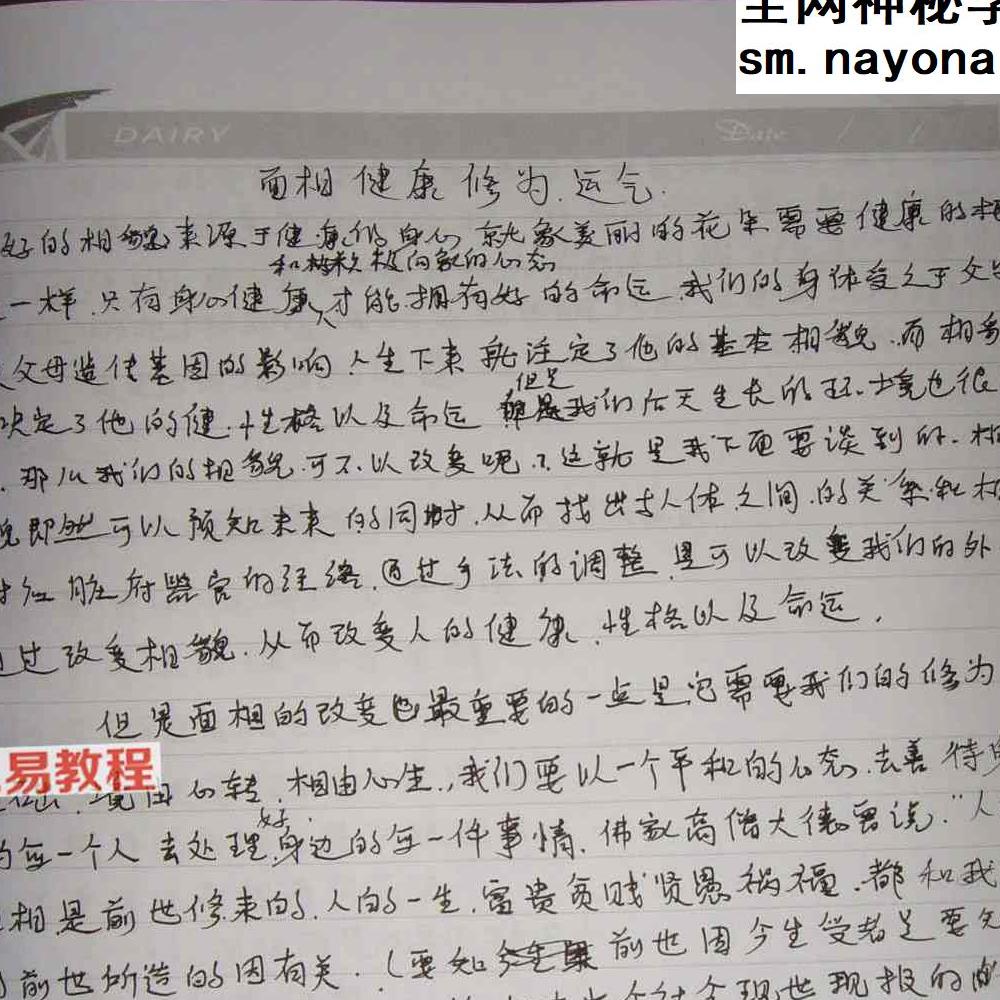 全网神秘学
sm.nayona
DAIRY
Date / /
面相 健康 修为 运气.
好的相貌来源于健康的身心 就象美丽的花朵需要健康的根
和积极向上的心态
一样.只有身心健康才能拥有好的命运.我们的身体受之于父母
父母遗传基因的影响.人生下来就注定了他的基本相貌.而相貌
但是
决定了他的健.性格以及命运 我们后天生长的环.境也很
.那么我们的相貌可不以改变呢.这就是我下面要谈到的.相
貌即然可以预知未来的同时.从而找出与人体之间.的关系和
对应脏府器官的经络.通过手法的调整.是可以改变我们的外
过改变相貌.从而改变人的健康.性格以及命运.
但是面相的改变也最重要的一点是它需要我们的修为
易教程
境由心转.相由心生.,我们要以一个平和的心态.去善待身
好
的每一个人 去处理身边的每一件事情.佛家高僧大德曾说."人
相是前世修来的.人的一生.富贵贫贱贤愚祸福.都和我
前世所造的因有关.(要知 前世因今生受者是要知
个社会现世现报的